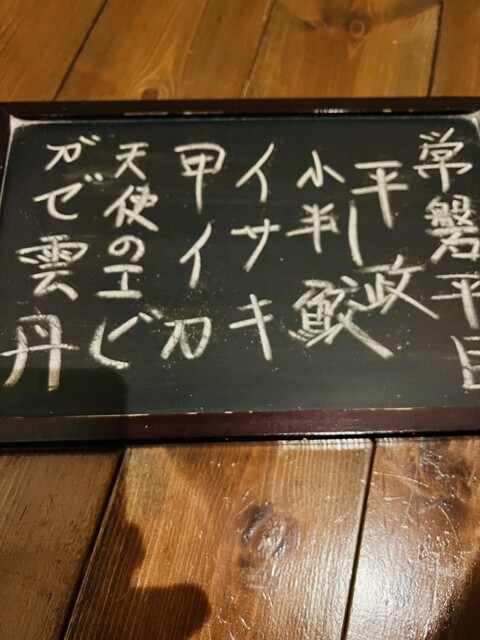 常磐平目
平政
小判鮫
イサキ
甲イカ
天使のエビ
ガゼ雲丹